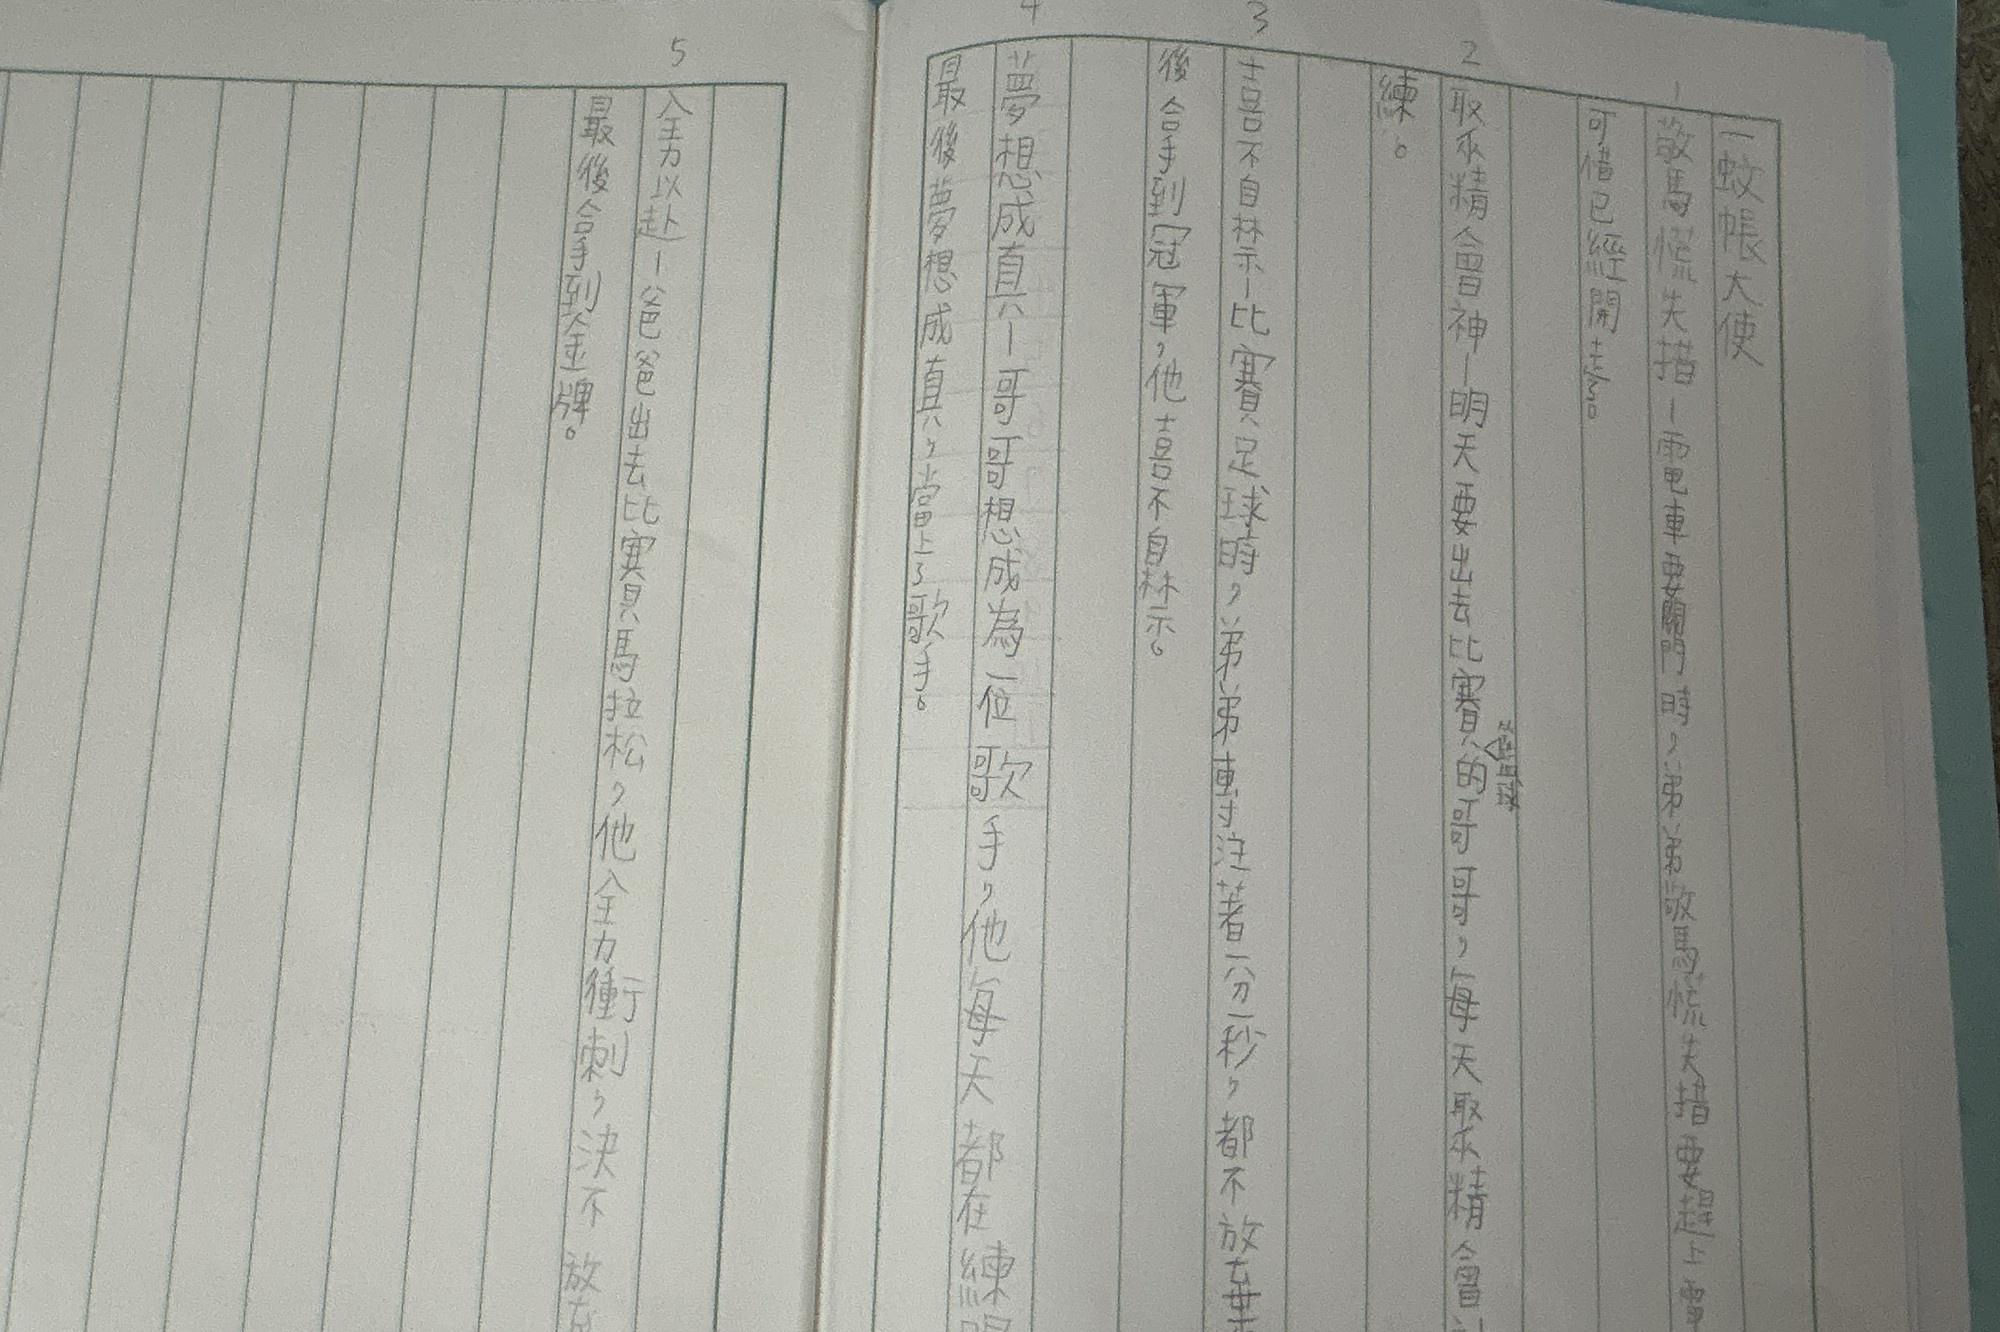 一蚊帳大使
1
驚慌失措—電車要關門時,弟弟驚慌失措要趕上電
可惜已經開走了。
2
聚精會神—明天要出去比賽籃球的哥哥,每天聚精會
練。
3
喜不自禁—比賽足球時,弟弟專注著一分一秒,都不放棄
後拿到冠軍,他喜不自禁。
4
夢想成真—哥哥想成為一位歌手,他每天都在練
最後夢想成真,當上了歌手。
5
全力以赴—爸爸出去比賽馬拉松,他全力衝刺,決不放
最後拿到金牌。